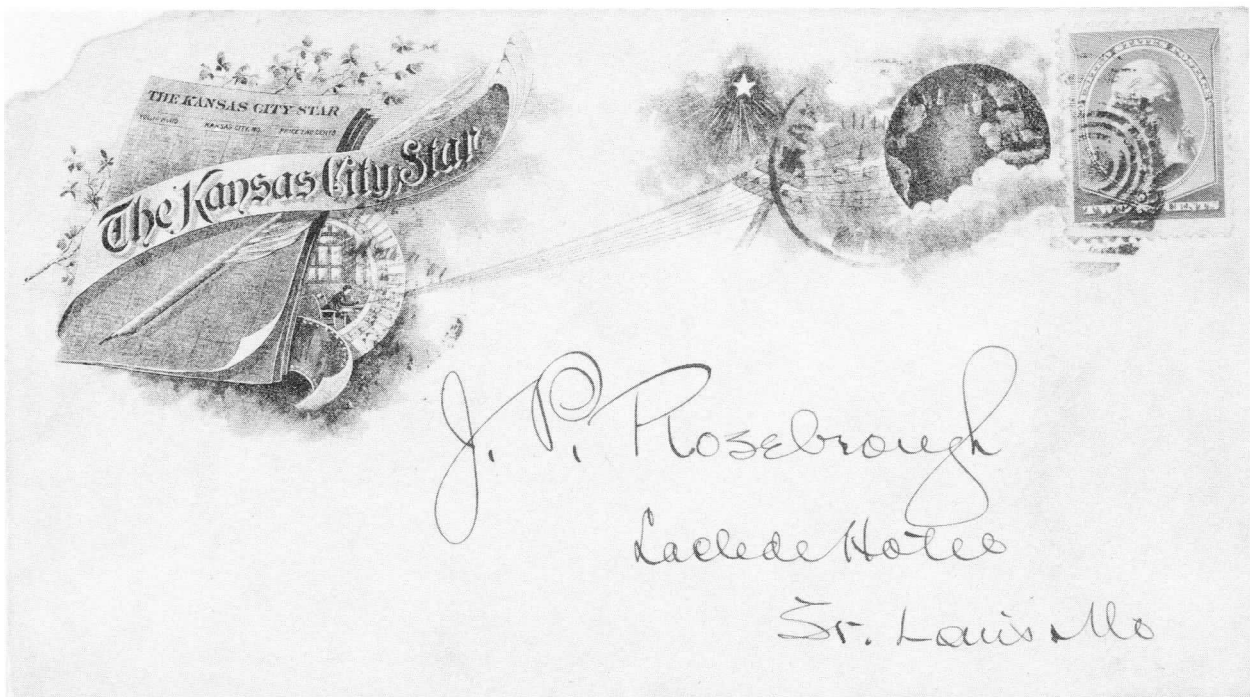 THE KANSAS CITY STAR
KANSAS CITY, MO. PRICE TWO CENTS
The Kansas City Star
UNITED STATES POSTAGE
TWO CENTS
J. P. Rosebrough
Laclede Hotel
St. Louis Mo